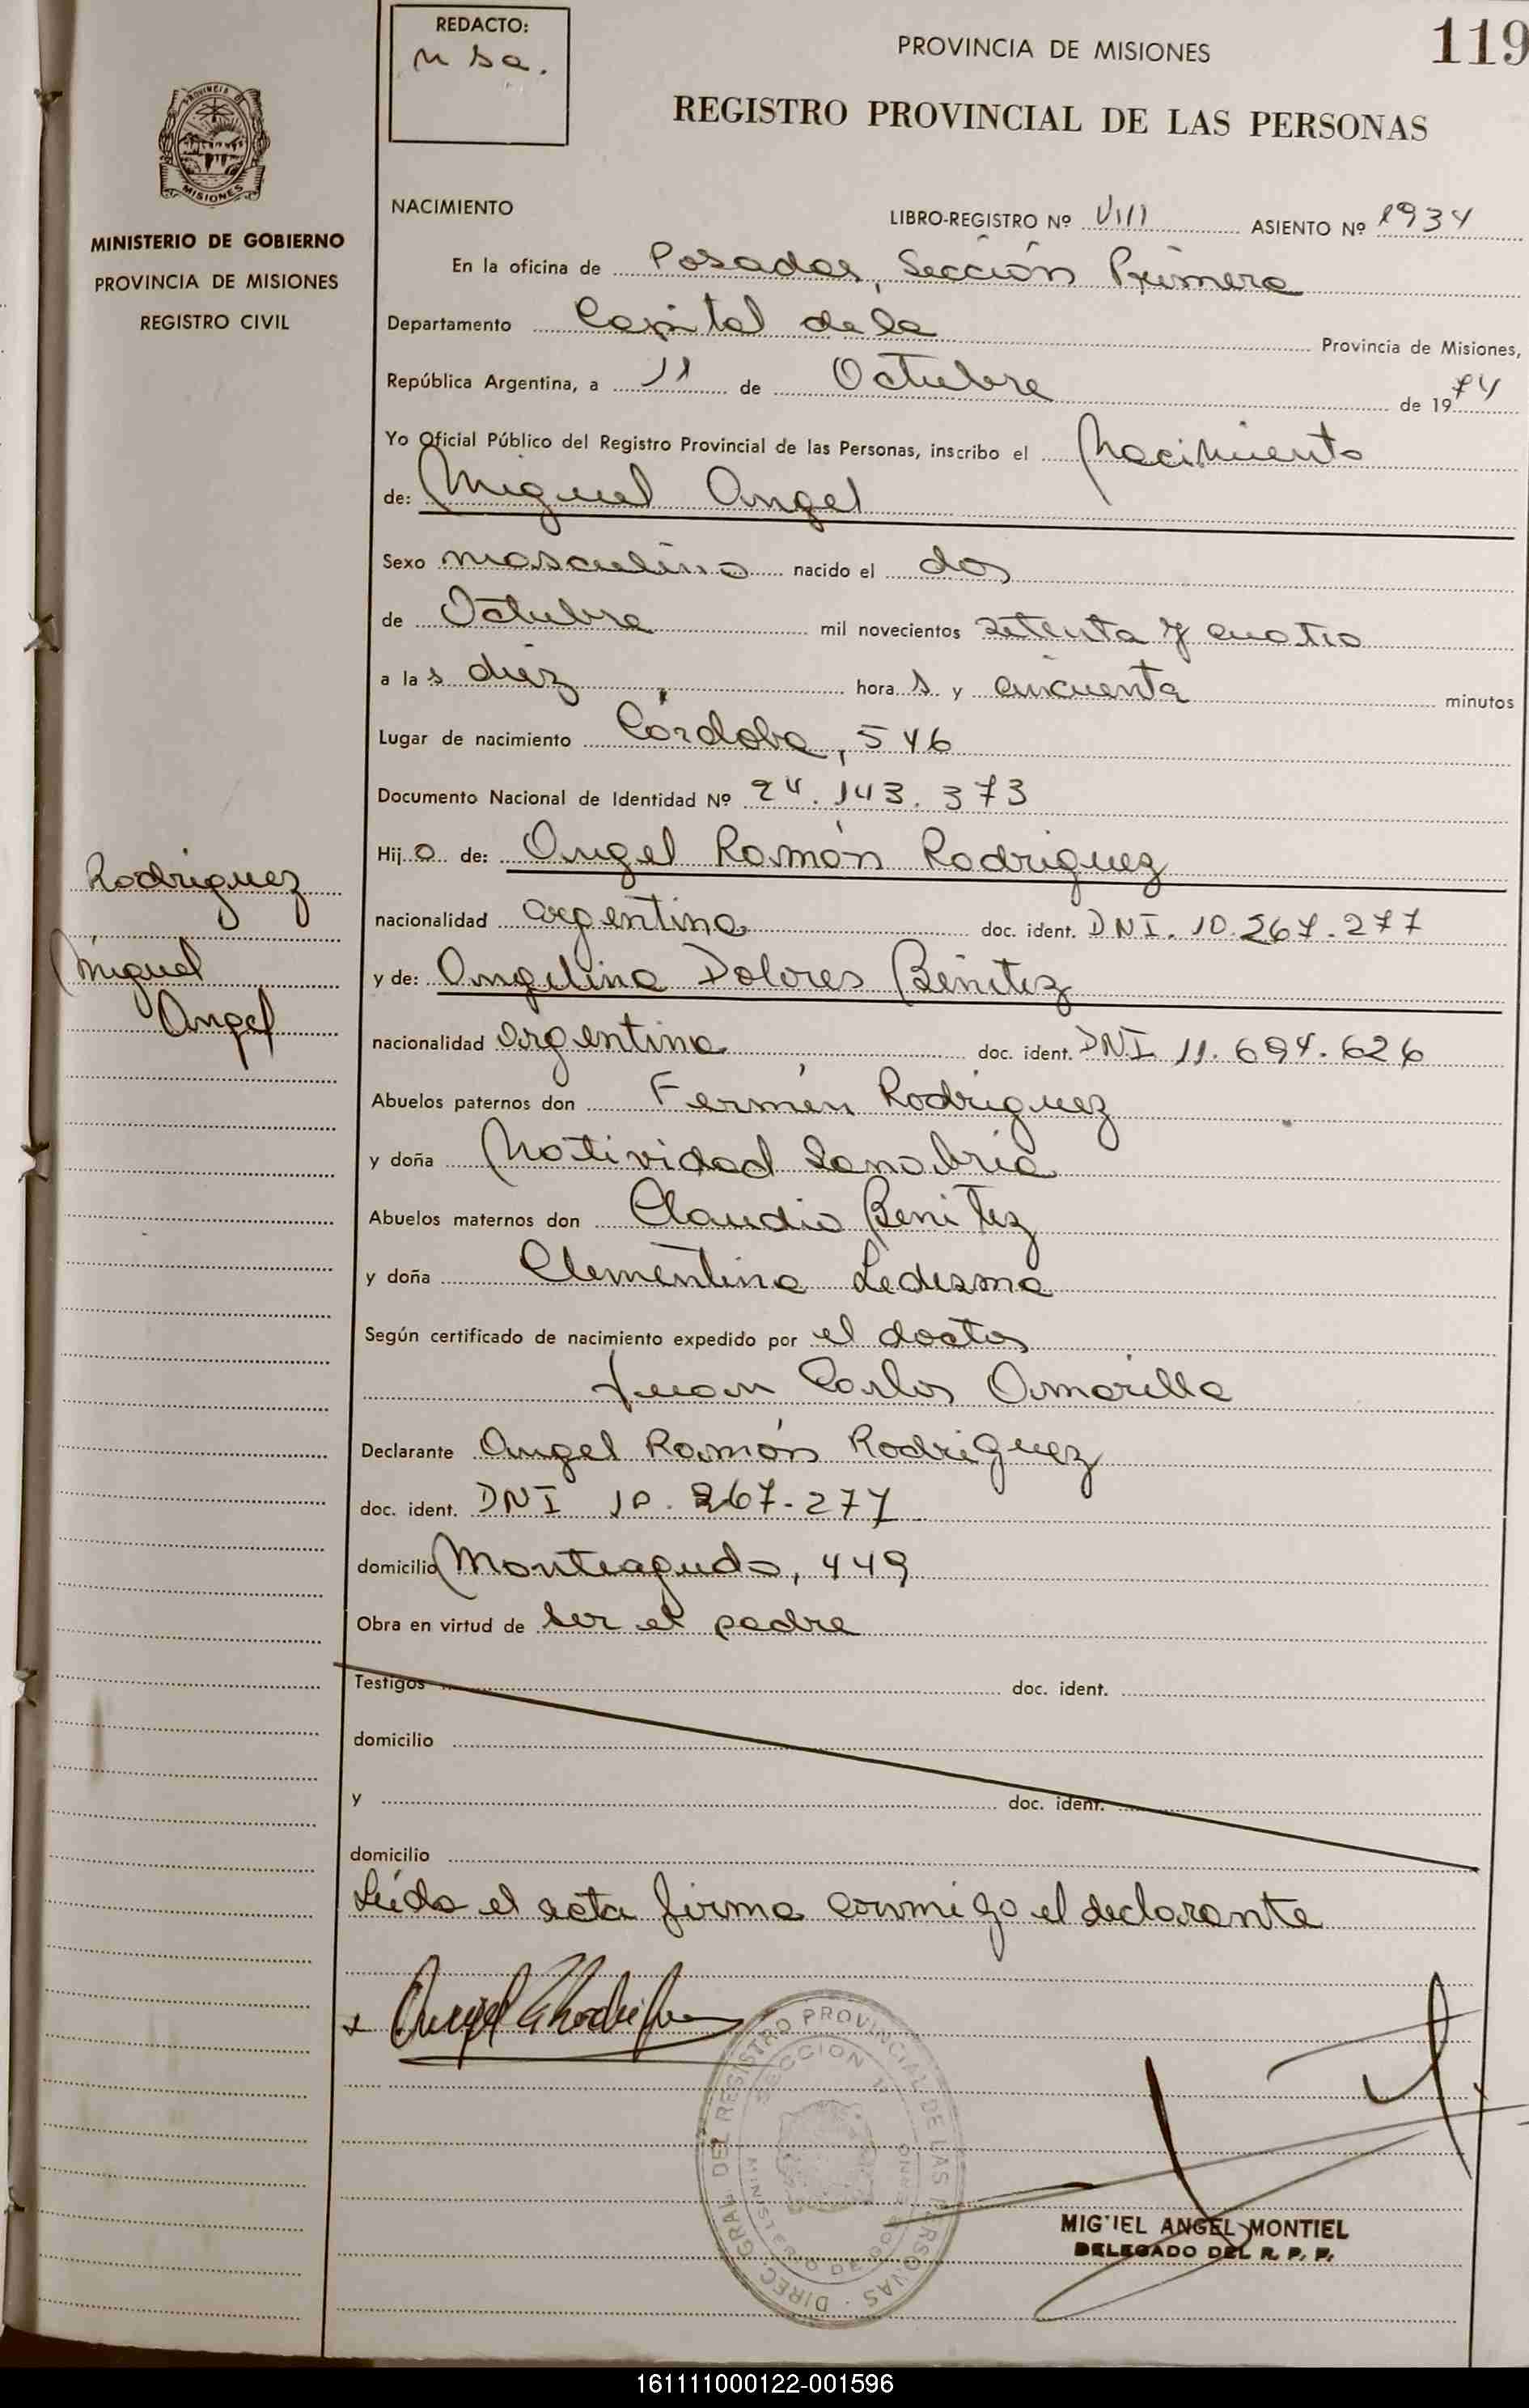 REDACTO:
PROVINCIA DE MISIONES
119
REGISTRO PROVINCIAL DE LAS PERSONAS
PROVINCIA DE
MISIONES
MINISTERIO DE GOBIERNO
PROVINCIA DE MISIONES
REGISTRO CIVIL
NACIMIENTO
LIBRO-REGISTRO Nº VIII ASIENTO Nº 1934
En la oficina de Posadas, Sección Primera
Departamento Capital de la Provincia de Misiones,
República Argentina, a 11 de Octubre de 1974
Yo Oficial Público del Registro Provincial de las Personas, inscribo el Nacimiento
de: Miguel Angel
Sexo masculino nacido el dos
de Octubre mil novecientos setenta y cuatro
a las diez horas y cincuenta minutos
Lugar de nacimiento Córdoba, 546
Documento Nacional de Identidad Nº 24.143.373
Hijo de: Angel Ramón Rodriguez
nacionalidad argentina doc. ident. DNI. 10.267.277
y de: Angelina Dolores Benitez
nacionalidad argentina doc. ident. DNI 11.694.626
Abuelos paternos don Fermín Rodriguez
y doña Natividad Sanabria
Abuelos maternos don Claudio Benitez
y doña Clementina Ledesma
Según certificado de nacimiento expedido por el doctor
Juan Carlos Amarilla
Declarante Angel Ramón Rodriguez
doc. ident. DNI 10.267.277
domicilio Monteagudo, 449
Obra en virtud de ser el padre
Testigos doc. ident.
domicilio
y doc. ident.
domicilio
Leída el acta firma conmigo el declarante
Rodriguez
Miguel
Angel
DIREC. GRAL. DEL REGISTRO PROVINCIAL DE LAS PERSONAS
SECCION 1ª
MINISTERIO DE GOBIERNO
MIGUEL ANGEL MONTIEL
DELEGADO DEL R. P. P.
161111000122-001596